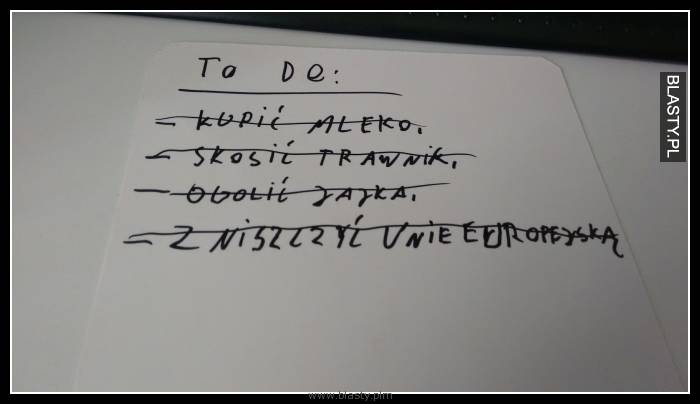 To De:
- KUPIĆ MLEKO.
- SKOSIĆ TRAWNIK.
- OGOLIĆ JAJKA.
- ZNISZCZYĆ UNIE EUROPEJSKĄ
BLASTY.PL
www.blasty.plm